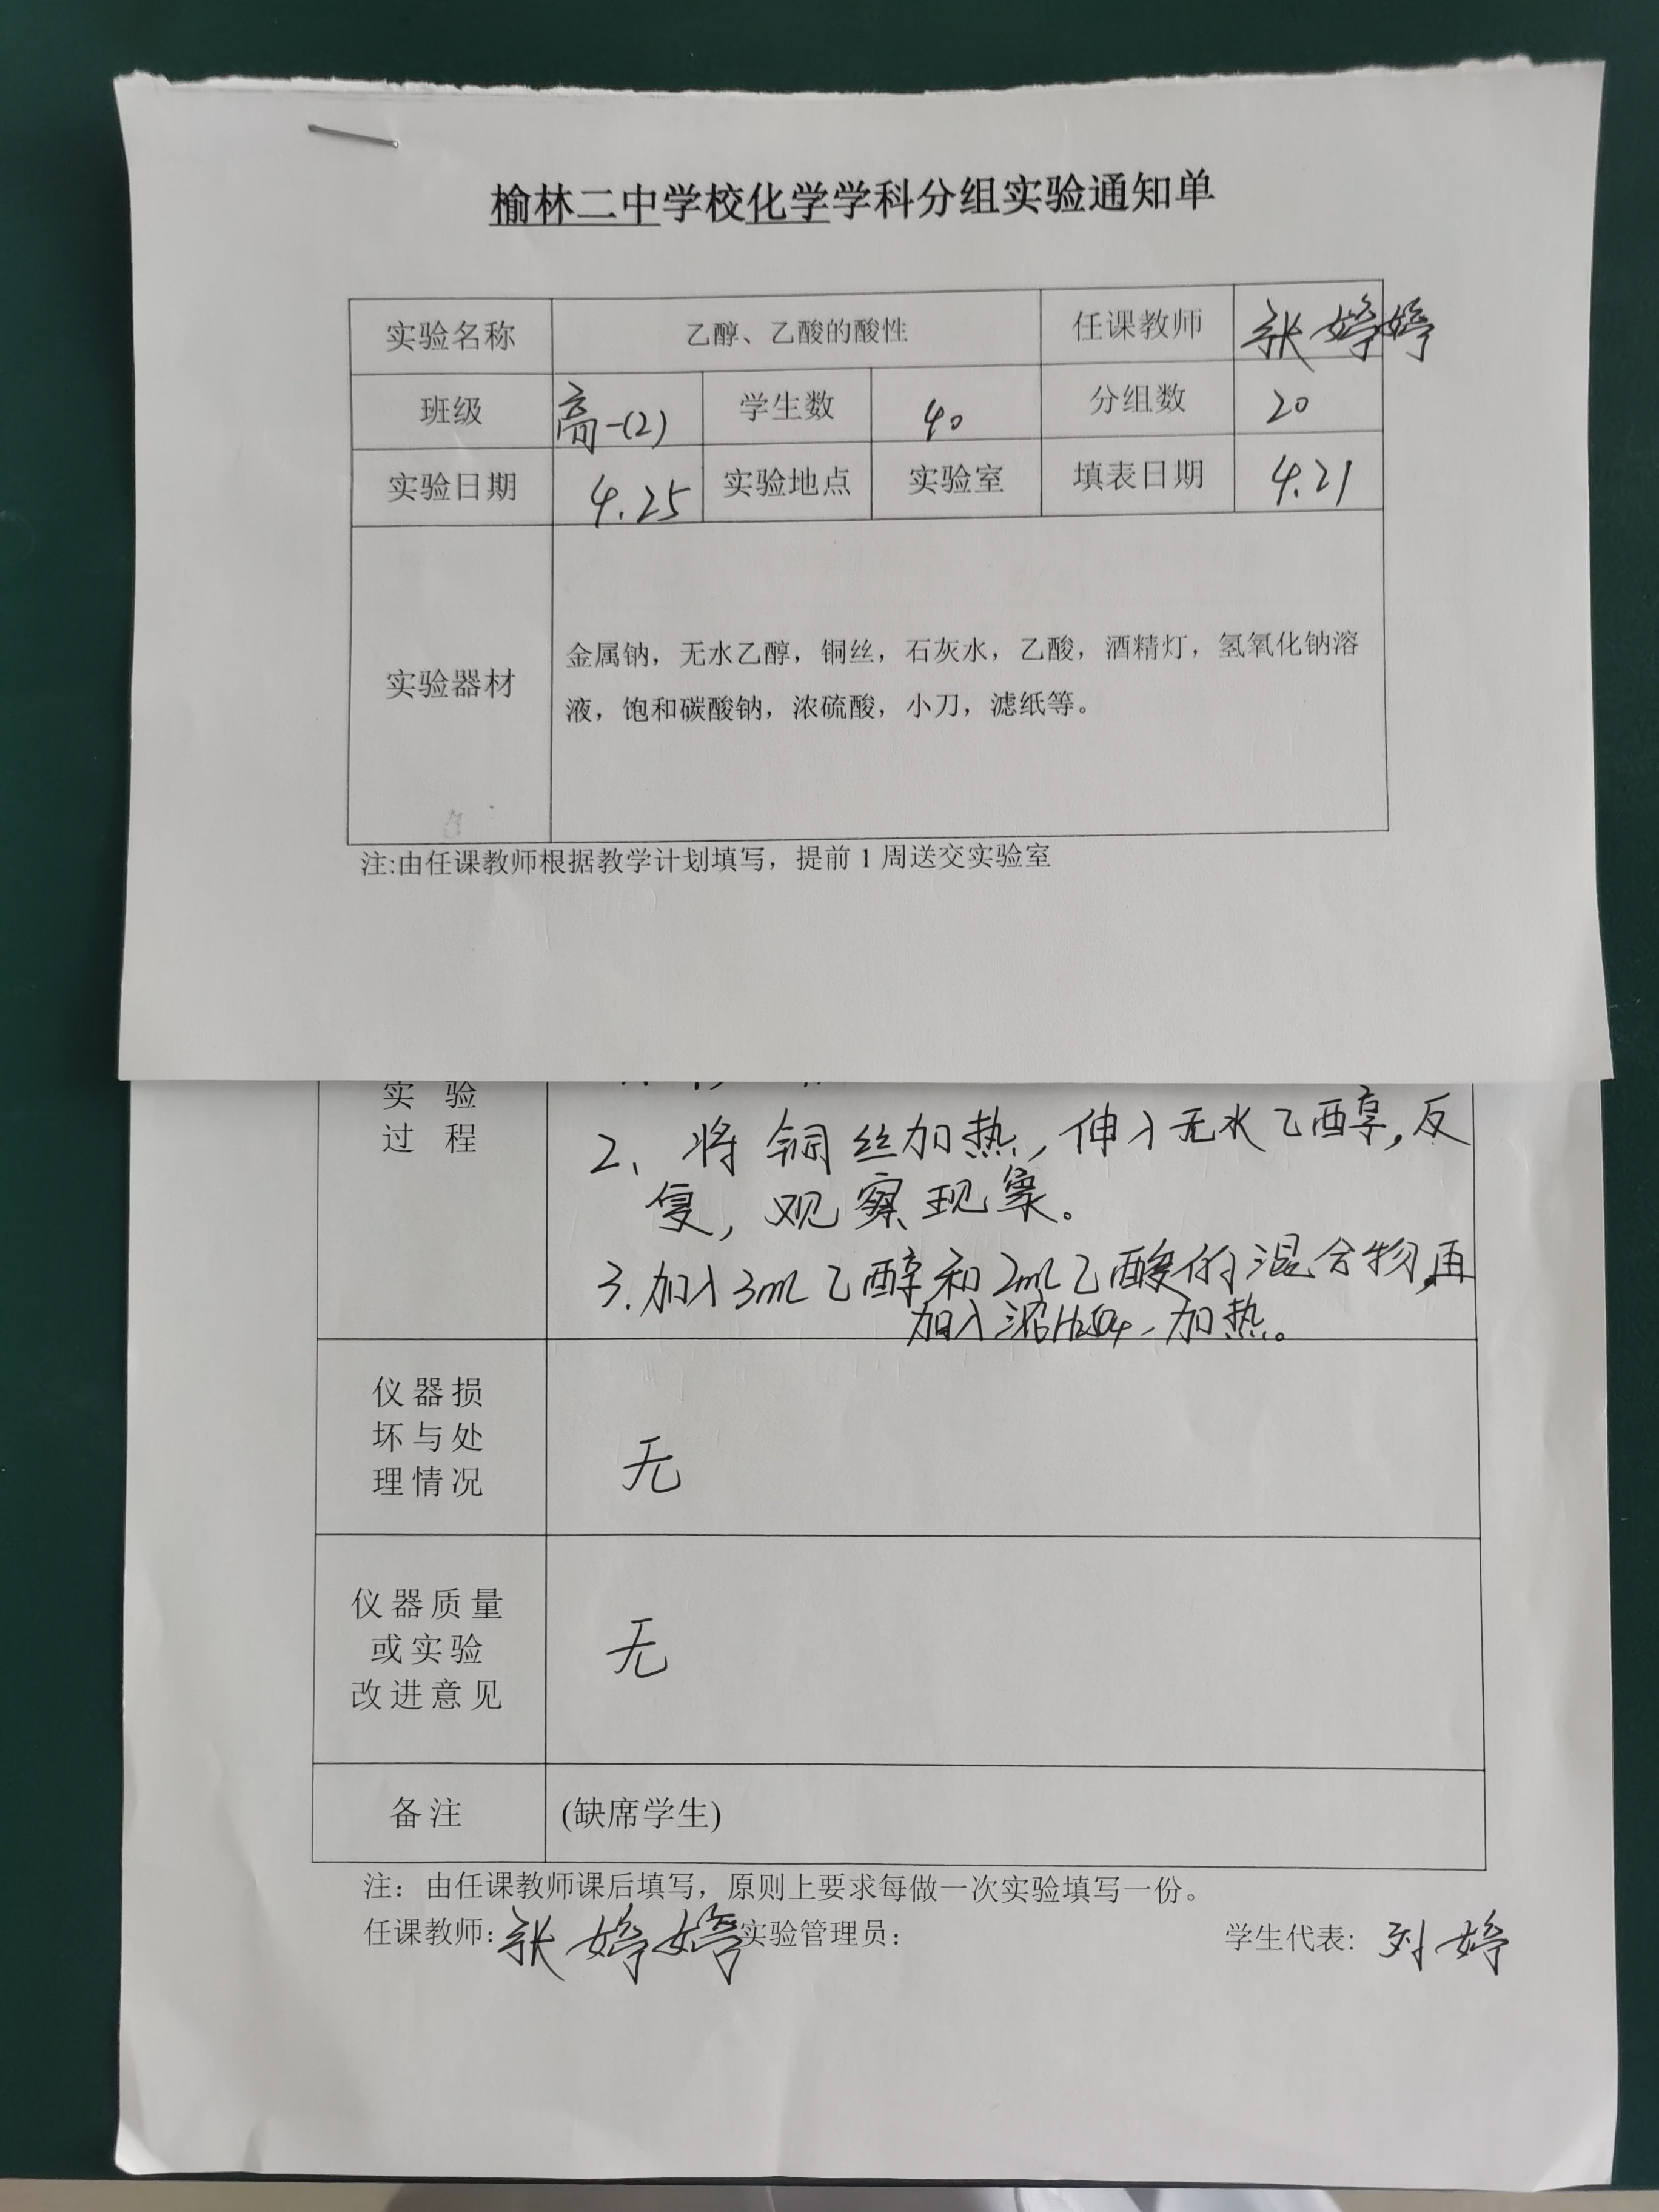 榆林二中学校化学学科分组实验通知单
实验名称 乙醇、乙酸的酸性 任课教师 张婷婷
班级 高一(2) 学生数 40 分组数 20
实验日期 4.25 实验地点 实验室 填表日期 4.21
实验器材
金属钠，无水乙醇，铜丝，石灰水，乙酸，酒精灯，氢氧化钠溶
液，饱和碳酸钠，浓硫酸，小刀，滤纸等。
注:由任课教师根据教学计划填写，提前1周送交实验室
实验
过程
2、将铜丝加热，伸入无水乙醇，反
复，观察现象。
3.加入3mL乙醇和2mL乙酸的混合物，再
加入浓H2SO4，加热。
仪器损
坏与处
理情况
无
仪器质量
或实验
改进意见
无
备注 (缺席学生)
注：由任课教师课后填写，原则上要求每做一次实验填写一份。
任课教师：张婷婷 实验管理员： 学生代表: 刘婷